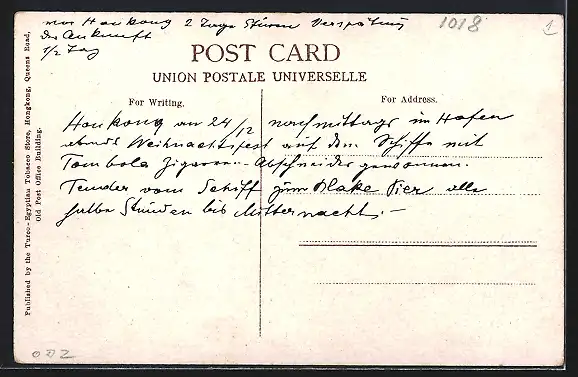 vor Honkong 2 Tage Sturm Verspätung
der Ankunft
1/2 Tag
1018
1
POST CARD
UNION POSTALE UNIVERSELLE
For Writing.
For Address.
Honkong an 24/12 nachmittags im Hafen
abends Weihnachtsfest auf dem Schiffe mit
Tombola Zigarren-Abschneider gewonnen.
Tender vom Schiff zum Blake Pier alle
halbe Stunden bis Mitternacht. —
Published by the Turco-Egyptian Tobacco Store, Hongkong, Queens Road,
Old Post Office Building.